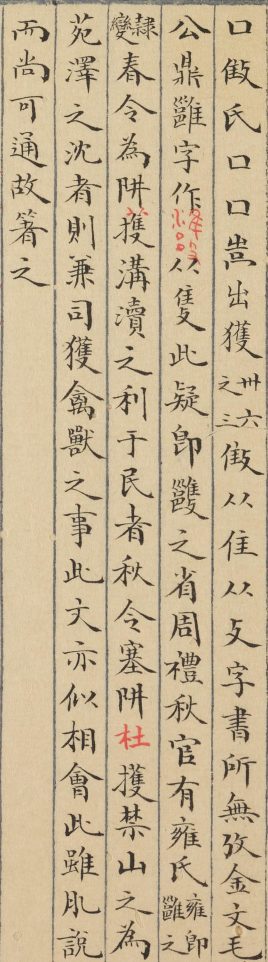 口氏口口出獲卅六之三从隹从攴字書所無攷金文毛
公鼎雝字作从此疑即之省周禮秋官有雍氏雍即雝之
隸變春令為阱擭溝瀆之利于民者秋令塞阱杜擭禁山之為
苑澤之沈者則兼司獲禽獸之事此文亦似相會此雖肊說
而尚可通故箸之